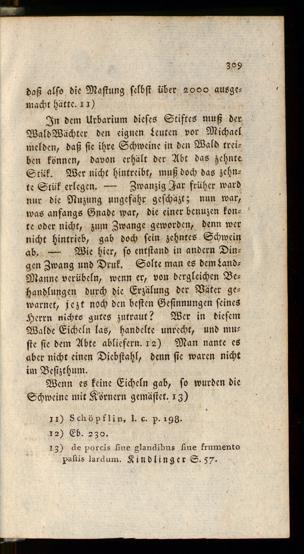 309
daß also die Mastung selbst über 2000 ausge-
macht hätte. 11)
In dem Urbarium dieses Stiftes muß der
WaldWächter den eignen Leuten vor Michael
melden, daß sie ihre Schweine in den Wald trei-
ben können, davon erhält der Abt das zehnte
Stük. Wer nicht hintreibt, muß doch das zehn-
te Stük erlegen. — Zwanzig Jar früher ward
nur die Nuzung ungefähr geschäzt; nun war,
was anfangs Gnade war, die einer benuzen kon-
te oder nicht, zum Zwange geworden, denn wer
nicht hintrieb, gab doch sein zehntes Schwein
ab. — Wie hier, so entstand in andern Din-
gen Zwang und Druk. Solte man es dem Land-
Manne verübeln, wenn er, von dergleichen Be-
handlungen durch die Erzälung der Väter ge-
warnet, jezt noch den besten Gesinnungen seines
Herrn nichts gutes zutraut? Wer in diesem
Walde Eicheln las, handelte unrecht, und mu-
ste sie dem Abte abliefern. 12) Man nante es
aber nicht einen Diebstahl, denn sie waren nicht
im Besizthum.
Wenn es keine Eicheln gab, so wurden die
Schweine mit Körnern gemästet. 13)
11) Schöpflin, l. c. p. 198.
12) Eb. 230.
13) de porcis sine glandibus sine frumento
pastis lardum. Kindlinger S. 57.